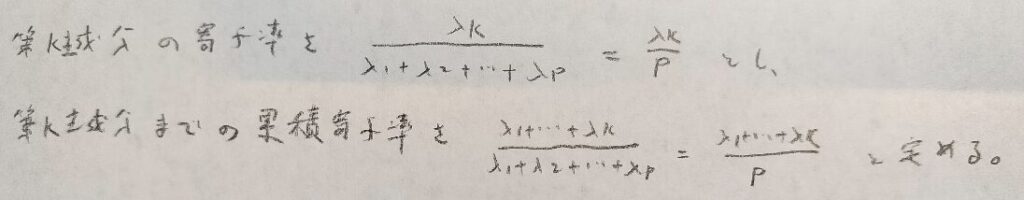 第k主成分の寄与率を λk/(λ1+λ2+…+λp) = λk/p とし、
第k主成分までの累積寄与率を (λ1+…+λk)/(λ1+λ2+…+λp) = (λ1+…+λk)/p と定める。